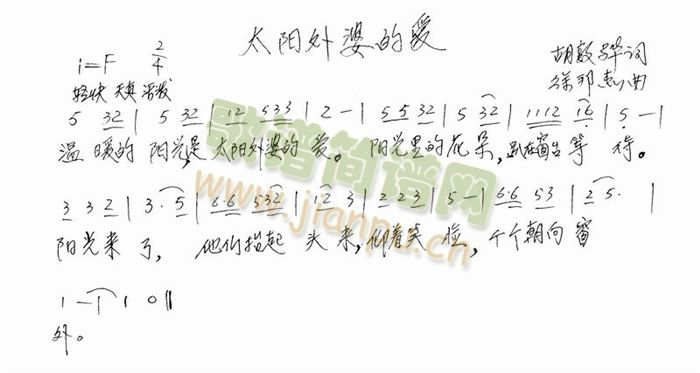 太阳外婆的爱
1=F 2/4
轻快 天真 活泼
胡敦骅词
徐邪惠曲
5 32 | 5 32 | 12 533 | 2 - | 5532 | 5 32 | 1112 16 | 5 - |
温暖的阳光,是太阳外婆的爱。阳光里的花朵,趴在窗台等待。
3 32 | 3. 5 | 6.6 532 | 12 3 | 223 | 5 - | 6.6 53 | 2 5. |
阳光来了,他们抬起头来,仰着笑脸,个个朝向窗
1 - | 1 0 ‖
外。
歌谱简谱网
www.jianpu.cn